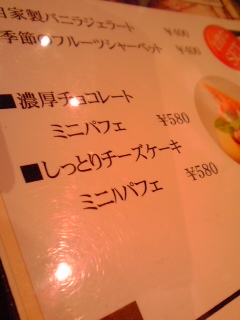 自家製バニラジェラート ¥400
季節のフルーツシャーベット ¥400
■濃厚チョコレート
ミニパフェ ¥580
■しっとりチーズケーキ
ミニルパフェ ¥580